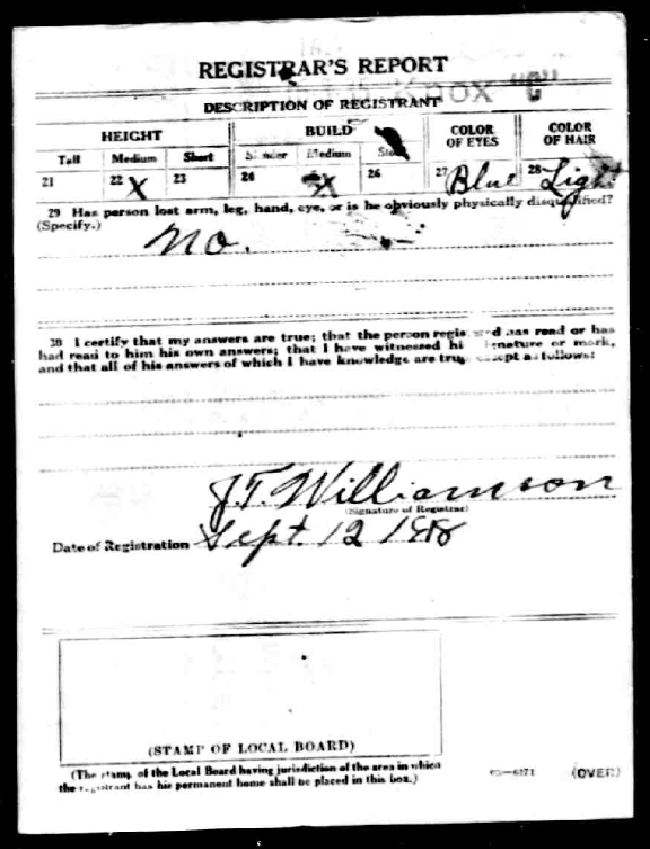 REGISTRAR'S REPORT
Knox "C"
DESCRIPTION OF REGISTRANT
HEIGHT BUILD COLOR OF EYES COLOR OF HAIR
Tall Medium Short Slender Medium
21 22 X 23 24 X 26 27 Blue 28 Light
29 Has person lost arm, leg, hand, eye, or is he obviously physically disqualified?
(Specify.) No.
30 I certify that my answers are true; that the person registered has read or has
had read to him his own answers; that I have witnessed his signature or mark,
and that all of his answers of which I have knowledge are true, except as follows:
J.T. Williamson
(Signature of Registrar)
Date of Registration Sept. 12 1918
(STAMP OF LOCAL BOARD)
(The stamp of the Local Board having jurisdiction of the area in which
the registrant has his permanent home shall be placed in this box.)
03—6171 (OVER)